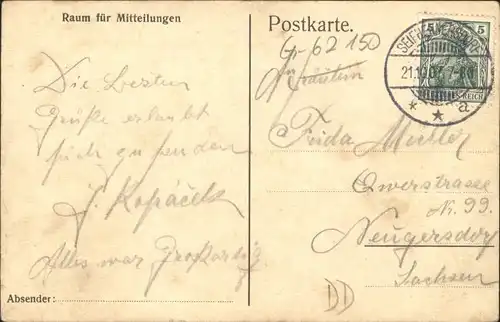 Raum für Mitteilungen
Die besten
Grüße erlaubt
sich zu senden
J. Kopáček
Alles war Großartig
Absender:
Postkarte.
G-62 150
Fräulein
Frida Müller
Querstrasse
Nr. 99.
Neugersdorf
Sachsen
DD
5 5
REICH
21.10.07. 7-8N
* * a